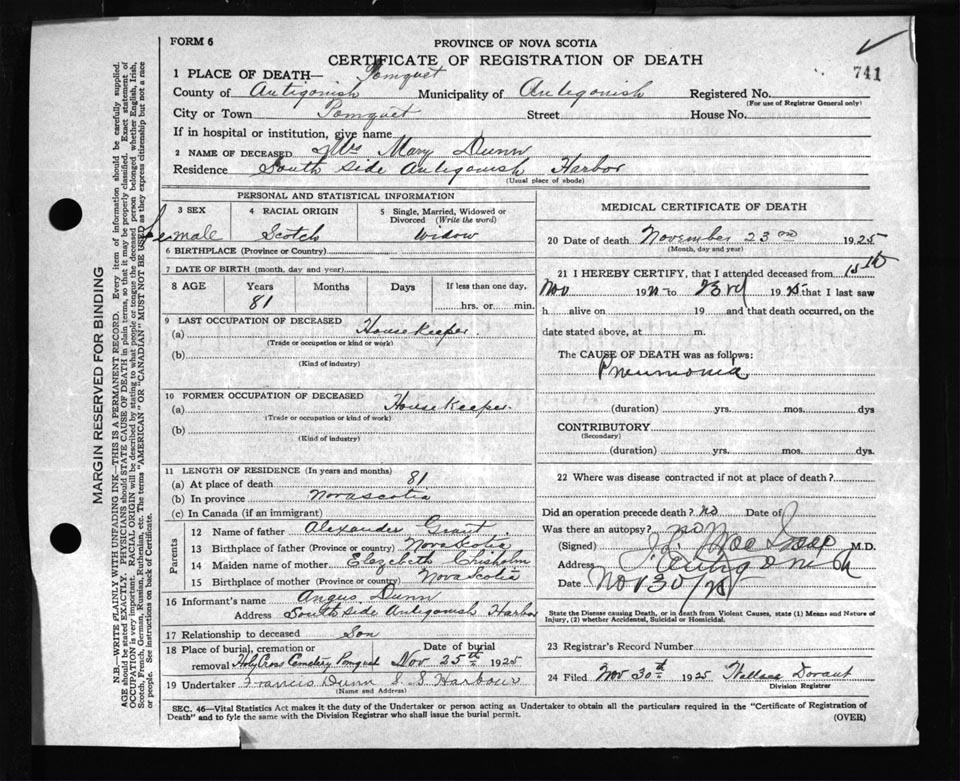 FORM 6
PROVINCE OF NOVA SCOTIA
CERTIFICATE OF REGISTRATION OF DEATH
741
1 PLACE OF DEATH— Pomquet
County of Antigonish Municipality of Antigonish Registered No.
(For use of Registrar General only)
City or Town Pomquet Street House No.
If in hospital or institution, give name
2 NAME OF DECEASED Mrs Mary Dunn
Residence South Side Antigonish Harbor
(Usual place of abode)
PERSONAL AND STATISTICAL INFORMATION
3 SEX Female
4 RACIAL ORIGIN Scotch
5 Single, Married, Widowed or Divorced (Write the word) Widow
6 BIRTHPLACE (Province or Country)
7 DATE OF BIRTH (month, day and year)
8 AGE Years Months Days If less than one day,
81 hrs. or min.
9 LAST OCCUPATION OF DECEASED
(a) House Keeper
(Trade or occupation or kind or work)
(b)
(Kind of industry)
10 FORMER OCCUPATION OF DECEASED
(a) House Keeper
(Trade or occupation or kind of work)
(b)
(Kind of industry)
11 LENGTH OF RESIDENCE (In years and months)
(a) At place of death 81
(b) In province Nova Scotia
(c) In Canada (if an immigrant)
Parents
12 Name of father Alexander Grant
13 Birthplace of father (Province or country) Nova Scotia
14 Maiden name of mother Elezebeth Chisholm
15 Birthplace of mother (Province or country) Nova Scotia
16 Informant's name Angus Dunn
Address South Side Antigonish Harbor
17 Relationship to deceased Son
18 Place of burial, cremation or removal Holy Cross Cemetery Pomquet
Date of burial Nov 25th 1925
19 Undertaker Francis Dunn S. S Harbour
(Name and Address)
MEDICAL CERTIFICATE OF DEATH
20 Date of death November 23rd 1925
(Month, day and year)
21 I HEREBY CERTIFY, that I attended deceased from 15th
Nov 19 to 23rd 19 that I last saw
h alive on 19 and that death occurred, on the
date stated above, at m.
The CAUSE OF DEATH was as follows:
Pneumonia
(duration) yrs. mos. dys
CONTRIBUTORY
(Secondary)
(duration) yrs. mos. dys.
22 Where was disease contracted if not at place of death?
Did an operation precede death? no Date of
Was there an autopsy? no
(Signed) M.D.
Address Antigonish
Date Nov 30/25
State the Disease causing Death, or in death from Violent Causes, state (1) Means and Nature of
Injury, (2) whether Accidental, Suicidal or Homicidal.
23 Registrar's Record Number
24 Filed Nov 30th 1925 Wallace
Division Registrar
SEC. 46—Vital Statistics Act makes it the duty of the Undertaker or person acting as Undertaker to obtain all the particulars required in the "Certificate of Registration of
Death" and to fyle the same with the Division Registrar who shall issue the burial permit.
(OVER)
MARGIN RESERVED FOR BINDING
N.B.—WRITE PLAINLY WITH UNFADING INK—THIS IS A PERMANENT RECORD. Every item of information should be carefully supplied.
AGE should be stated EXACTLY. PHYSICIANS should STATE CAUSE OF DEATH in plain terms, so that it may be properly classified. Exact statement of
OCCUPATION is very important. RACIAL ORIGIN will be described by stating to what people or tongue the deceased person belonged whether English, Irish,
Scotch, French, German, Russian, Ruthenian, etc. The terms "AMERICAN" OR "CANADIAN" MUST NOT BE USED as they express citizenship but not a race
or people. See instructions on back of Certificate.